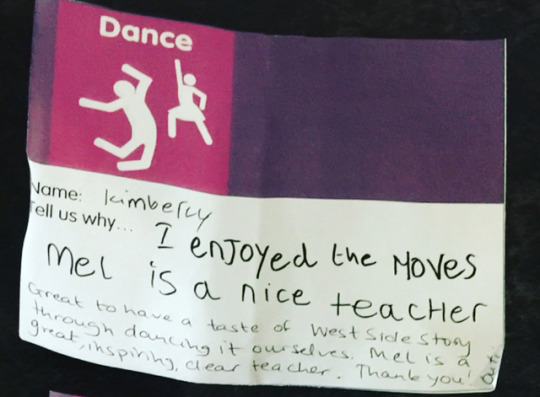 Dance
Name: kimberly
Tell us why... I enjoyed the Moves
Mel is a nice teacher
Great to have a taste of West Side Story
through dancing it ourselves. Mel is a
great, inspiring, clear teacher. Thank you!